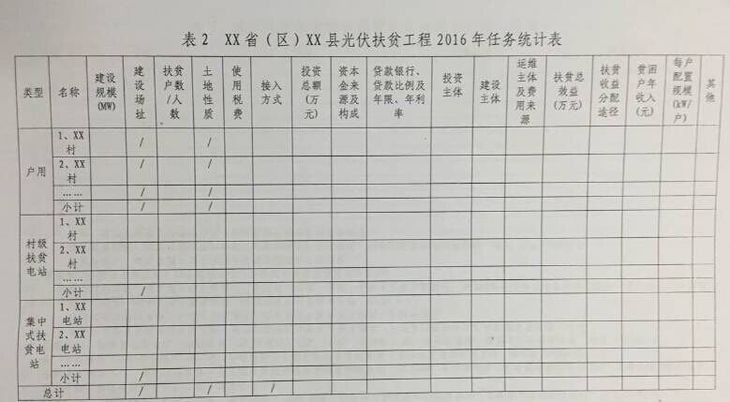 表2 XX省（区）XX县光伏扶贫工程2016年任务统计表
类型 名称 建设规模(MW) 建设场址 扶贫户数/人数 土地性质 使用税费 接入方式 投资总额(万元) 资本金来源及构成 贷款银行、贷款比例及年限、年利率 投资主体 建设主体 运维主体及费用来源 扶贫总效益(万元) 扶贫收益分配途径 贫困户年收入(元) 每户配置规模(kW/户) 其他
户用
1、XX村 / /
2、XX村 / /
…… / /
小计 / /
村级扶贫电站
1、XX村
2、XX村
……
小计 /
集中式扶贫电站
1、XX电站
2、XX电站
……
小计 /
总计 / / /